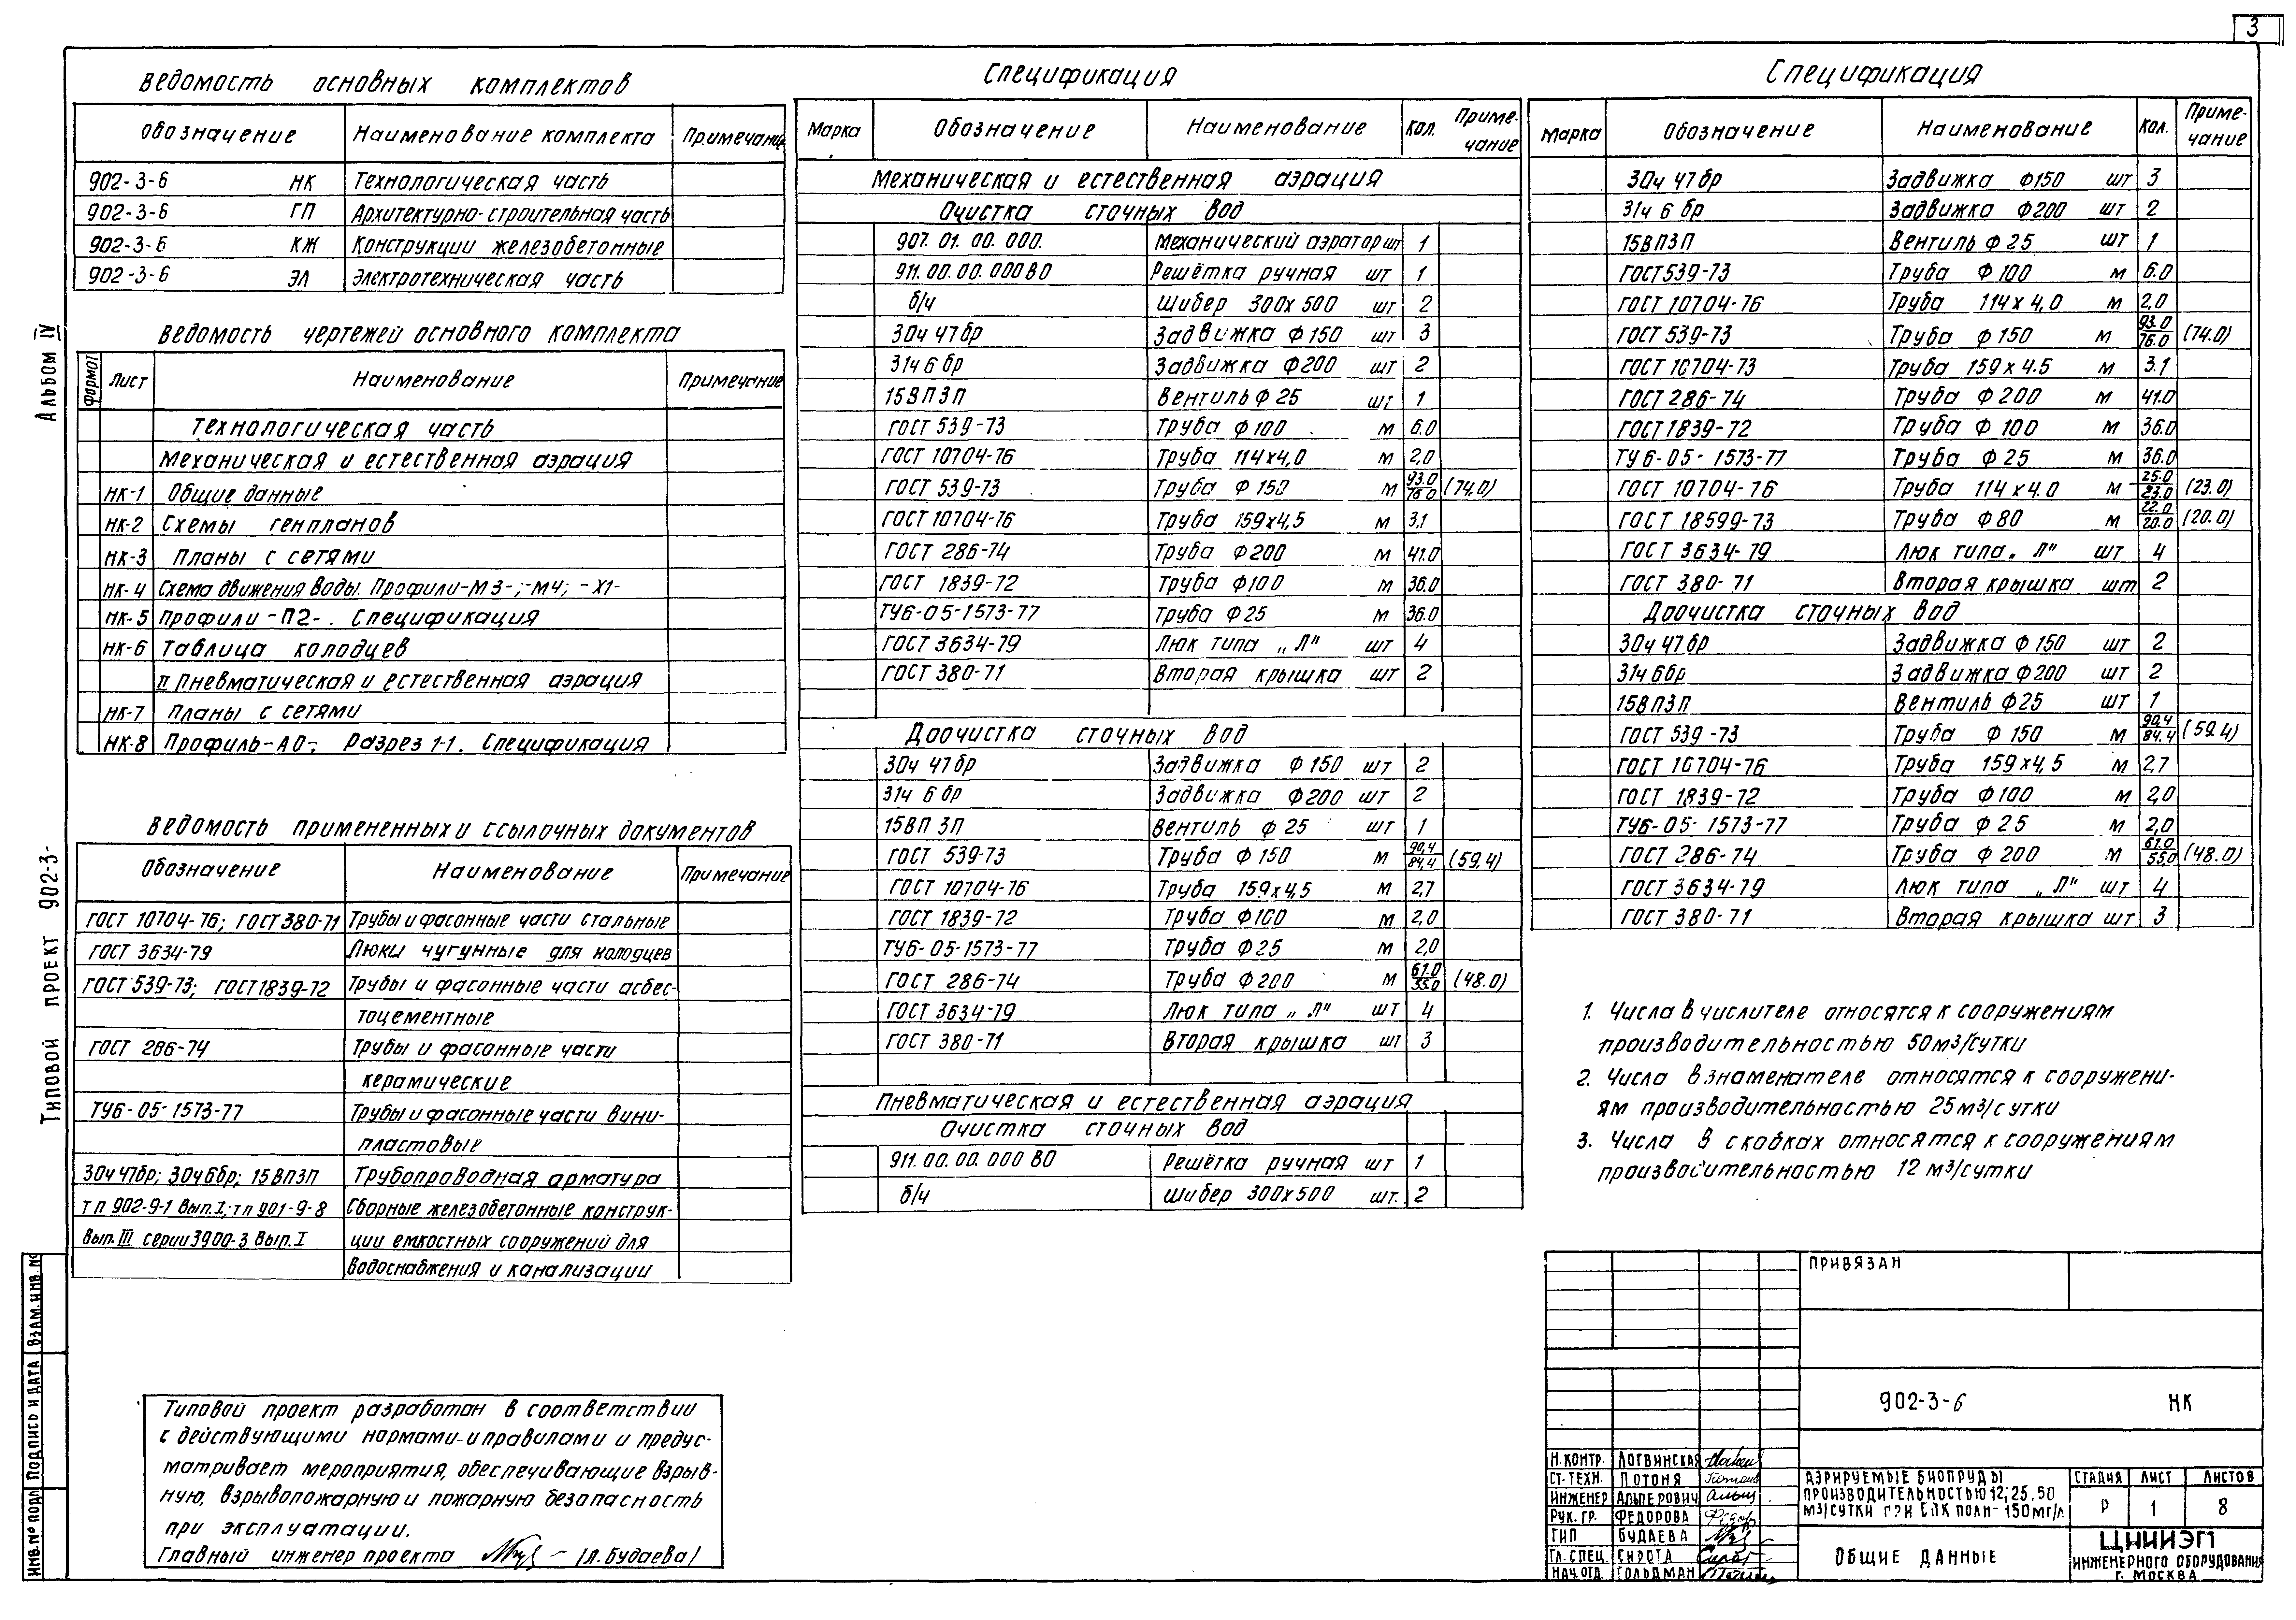 3
Альбом IV
Типовой проект 902-3-
Ведомость основных комплектов
Обозначение Наименование комплекта Примечание
902-3-6 НК Технологическая часть
902-3-6 ГП Архитектурно-строительная часть
902-3-6 КЖ Конструкции железобетонные
902-3-6 ЭЛ Электротехническая часть
Ведомость чертежей основного комплекта
Формат Лист Наименование Примечание
Технологическая часть
Механическая и естественная аэрация
НК-1 Общие данные
НК-2 Схемы генпланов
НК-3 Планы с сетями
НК-4 Схема движения воды. Профили -М3-; -М4; -Х1-
НК-5 Профили -П2-. Спецификация
НК-6 Таблица колодцев
II Пневматическая и естественная аэрация
НК-7 Планы с сетями
НК-8 Профиль -А0-; Разрез 1-1. Спецификация
Ведомость примененных и ссылочных документов
Обозначение Наименование Примечание
ГОСТ 10704-76; ГОСТ 380-71 Трубы и фасонные части стальные
ГОСТ 3634-79 Люки чугунные для колодцев
ГОСТ 539-73; ГОСТ 1839-72 Трубы и фасонные части асбес-
тоцементные
ГОСТ 286-74 Трубы и фасонные части
керамические
ТУ6-05-1573-77 Трубы и фасонные части вини-
пластовые
30ч47бр; 30ч6бр; 15ВП3П Трубопроводная арматура
тп 902-9-1 Вып.I; тп 901-9-8 Сборные железобетонные конструк-
Вып. III серии 3900-3 Вып. I ции емкостных сооружений для
водоснабжения и канализации
Типовой проект разработан в соответствии
с действующими нормами и правилами и предус-
матривает мероприятия, обеспечивающие взрыв-
ную, взрывопожарную и пожарную безопасность
при эксплуатации.
Главный инженер проекта (Л. Будаева)
Спецификация
Марка Обозначение Наименование Кол. Приме-
чание
Механическая и естественная аэрация
Очистка сточных вод
907. 01. 00. 000. Механический аэратор шт 1
911. 00. 00. 000 ВО Решётка ручная шт 1
б/ч Шибер 300х500 шт 2
30ч 47бр Задвижка Ф150 шт 3
31ч 6 бр Задвижка Ф200 шт 2
15ВП3П Вентиль Ф25 шт 1
ГОСТ 539-73 Труба Ф100 м 6.0
ГОСТ 10704-76 Труба 114х4,0 м 2,0
ГОСТ 539-73 Труба Ф150 м 93.0/76.0 (74.0)
ГОСТ 10704-76 Труба 159х4,5 м 3,1
ГОСТ 286-74 Труба Ф200 м 41.0
ГОСТ 1839-72 Труба Ф100 м 36.0
ТУ6-05-1573-77 Труба Ф25 м 36.0
ГОСТ 3634-79 Люк типа „Л" шт 4
ГОСТ 380-71 Вторая крышка шт 2
Доочистка сточных вод
30ч 47бр Задвижка Ф150 шт 2
31ч 6 бр Задвижка Ф200 шт 2
15ВП 3П Вентиль Ф25 шт 1
ГОСТ 539-73 Труба Ф150 м 90,4/84,4 (59.4)
ГОСТ 10704-76 Труба 159х4,5 м 2,7
ГОСТ 1839-72 Труба Ф100 м 2,0
ТУ6-05-1573-77 Труба Ф25 м 2,0
ГОСТ 286-74 Труба Ф200 м 61.0/55.0 (48.0)
ГОСТ 3634-79 Люк типа „Л" шт 4
ГОСТ 380-71 Вторая крышка шт 3
Пневматическая и естественная аэрация
Очистка сточных вод
911. 00. 00. 000 ВО Решётка ручная шт 1
б/ч Шибер 300х500 шт. 2
Спецификация
Марка Обозначение Наименование Кол. Приме-
чание
30ч 47бр Задвижка Ф150 шт 3
31ч 6 бр Задвижка Ф200 шт 2
15ВП3П Вентиль Ф25 шт 1
ГОСТ 539-73 Труба Ф100 м 6.0
ГОСТ 10704-76 Труба 114х4,0 м 2,0
ГОСТ 539-73 Труба Ф150 м 93.0/76.0 (74.0)
ГОСТ 10704-73 Труба 159х4.5 м 3.1
ГОСТ 286-74 Труба Ф200 м 41.0
ГОСТ 1839-72 Труба Ф100 м 36.0
ТУ6-05-1573-77 Труба Ф25 м 36.0
ГОСТ 10704-76 Труба 114х4.0 м 25.0/23.0 (23.0)
ГОСТ 18599-73 Труба Ф80 м 22.0/20.0 (20.0)
ГОСТ 3634-79 Люк типа „Л" шт 4
ГОСТ 380-71 Вторая крышка шт 2
Доочистка сточных вод
30ч 47бр Задвижка Ф150 шт 2
31ч 6бр Задвижка Ф200 шт 2
15ВП3П Вентиль Ф25 шт 1
ГОСТ 539-73 Труба Ф150 м 90,4/84.4 (59.4)
ГОСТ 10704-76 Труба 159х4,5 м 2,7
ГОСТ 1839-72 Труба Ф100 м 2,0
ТУ6-05-1573-77 Труба Ф25 м 2,0
ГОСТ 286-74 Труба Ф200 м 61.0/55,0 (48.0)
ГОСТ 3634-79 Люк типа „Л" шт 4
ГОСТ 380-71 Вторая крышка шт 3
1. Числа в числителе относятся к сооружениям
производительностью 50м3/сутки
2. Числа в знаменателе относятся к сооружени-
ям производительностью 25м3/сутки
3. Числа в скобках относятся к сооружениям
производительностью 12 м3/сутки
Привязан
902-3-6 НК
Н.контр. Логвинская
Ст.техн. Потоня
Инженер Альперович
Рук. гр. Федорова
ГИП Будаева
Гл. спец. Сирота
Нач. отд. Гольдман
Аэрируемые биопруды
производительностью 12, 25, 50
м3/сутки при БПК полн-150мг/л
Стадия Лист Листов
Р 1 8
Общие данные
ЦНИИЭП
инженерного оборудования
г. Москва
Инв. № подл Подпись и дата Взам. инв. №